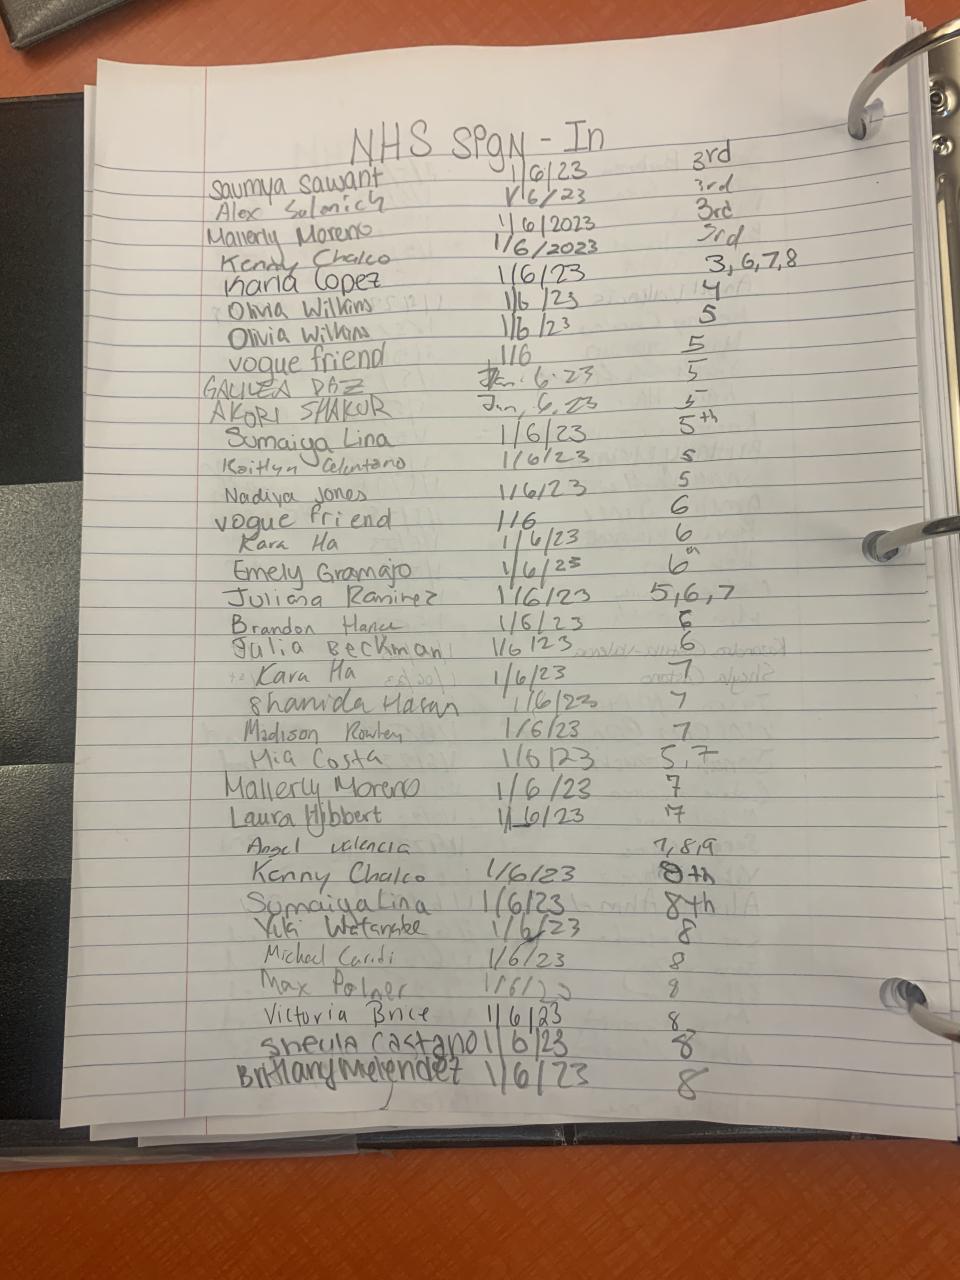 NHS SIgN - In
Saumya Sawant 1/6/23 3rd
Alex Salanich 1/6/23 3rd
Mallerly Moreno 1/6/2023 3rd
Kenny Chalco 1/6/2023 3rd
Karla Lopez 1/6/23 3,6,7,8
Olivia Wilkins 1/6/23 4
Olivia Wilkins 1/6/23 5
vogue friend 1/6 5
GALILEA DAZ Jan. 6. 23 5
AKORI SHAKUR Jan, 6, 23 5
Sumaiya Lina 1/6/23 5th
Kaitlyn Celentano 1/6/23 5
Nadiya Jones 1/6/23 5
vogue friend 1/6 6
Kara Ha 1/6/23 6
Emely Gramajo 1/6/23 6th
Juliana Ramirez 1/6/23 5,6,7
Brandon 1/6/23 6
Julia Beckman 1/6/23 6
Kara Ha 1/6/23 7
Shanida Hasan 1/6/23 7
Madison Rowley 1/6/23 7
Mia Costa 1/6/23 5,7
Mallerly Moreno 1/6/23 7
Laura Hibbert 1/6/23 7
Angel Valencia 7,8,9
Kenny Chalco 1/6/23 8th
Sumaiya Lina 1/6/23 8th
Yuki Watanabe 1/6/23 8
Michael Caridi 1/6/23 8
Max Polner 1/6/23 8
Victoria Brice 1/6/23 8
Sheyla Castano 1/6/23 8
Brittany Melendez 1/6/23 8